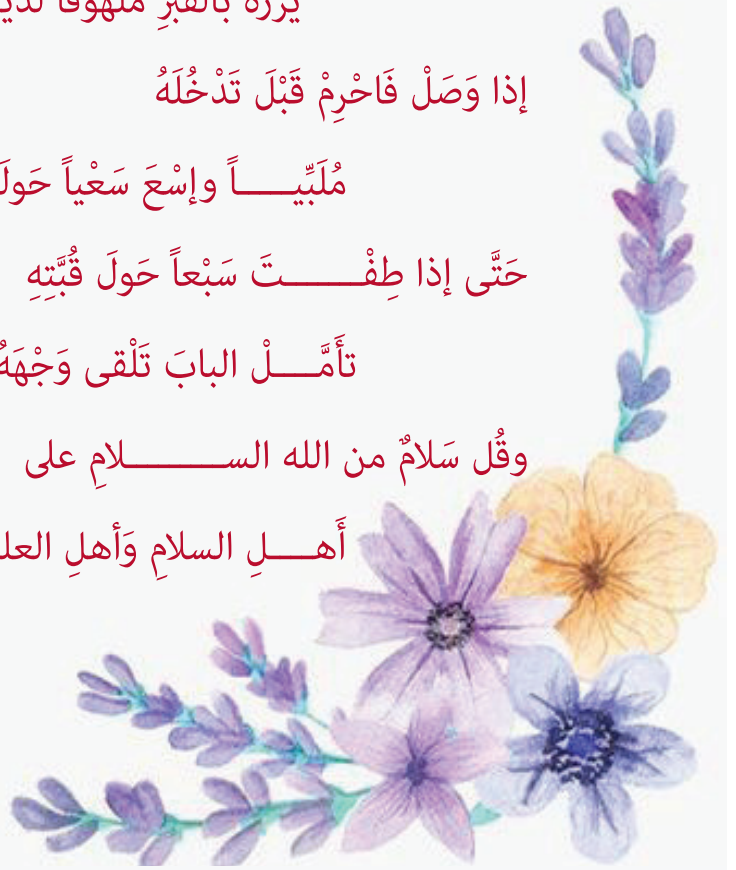 يزره بالقبرِ ملهوفاً
إذا وَصَلْ فَاحْرِمْ قَبْلَ تَدْخُلَهُ
مُلَبِّيــــــاً وإسْعَ سَعْياً
حَتَّى إذا طِفْــــــــتَ سَبْعاً حَولَ قُبَّتِهِ
تأَمَّـــــلْ البابَ تَلْقى وَجْهَهُ
وقُل سَلامٌ من الله الســـــــــــلامِ على
أَهـــــلِ السلامِ وَأهلِ